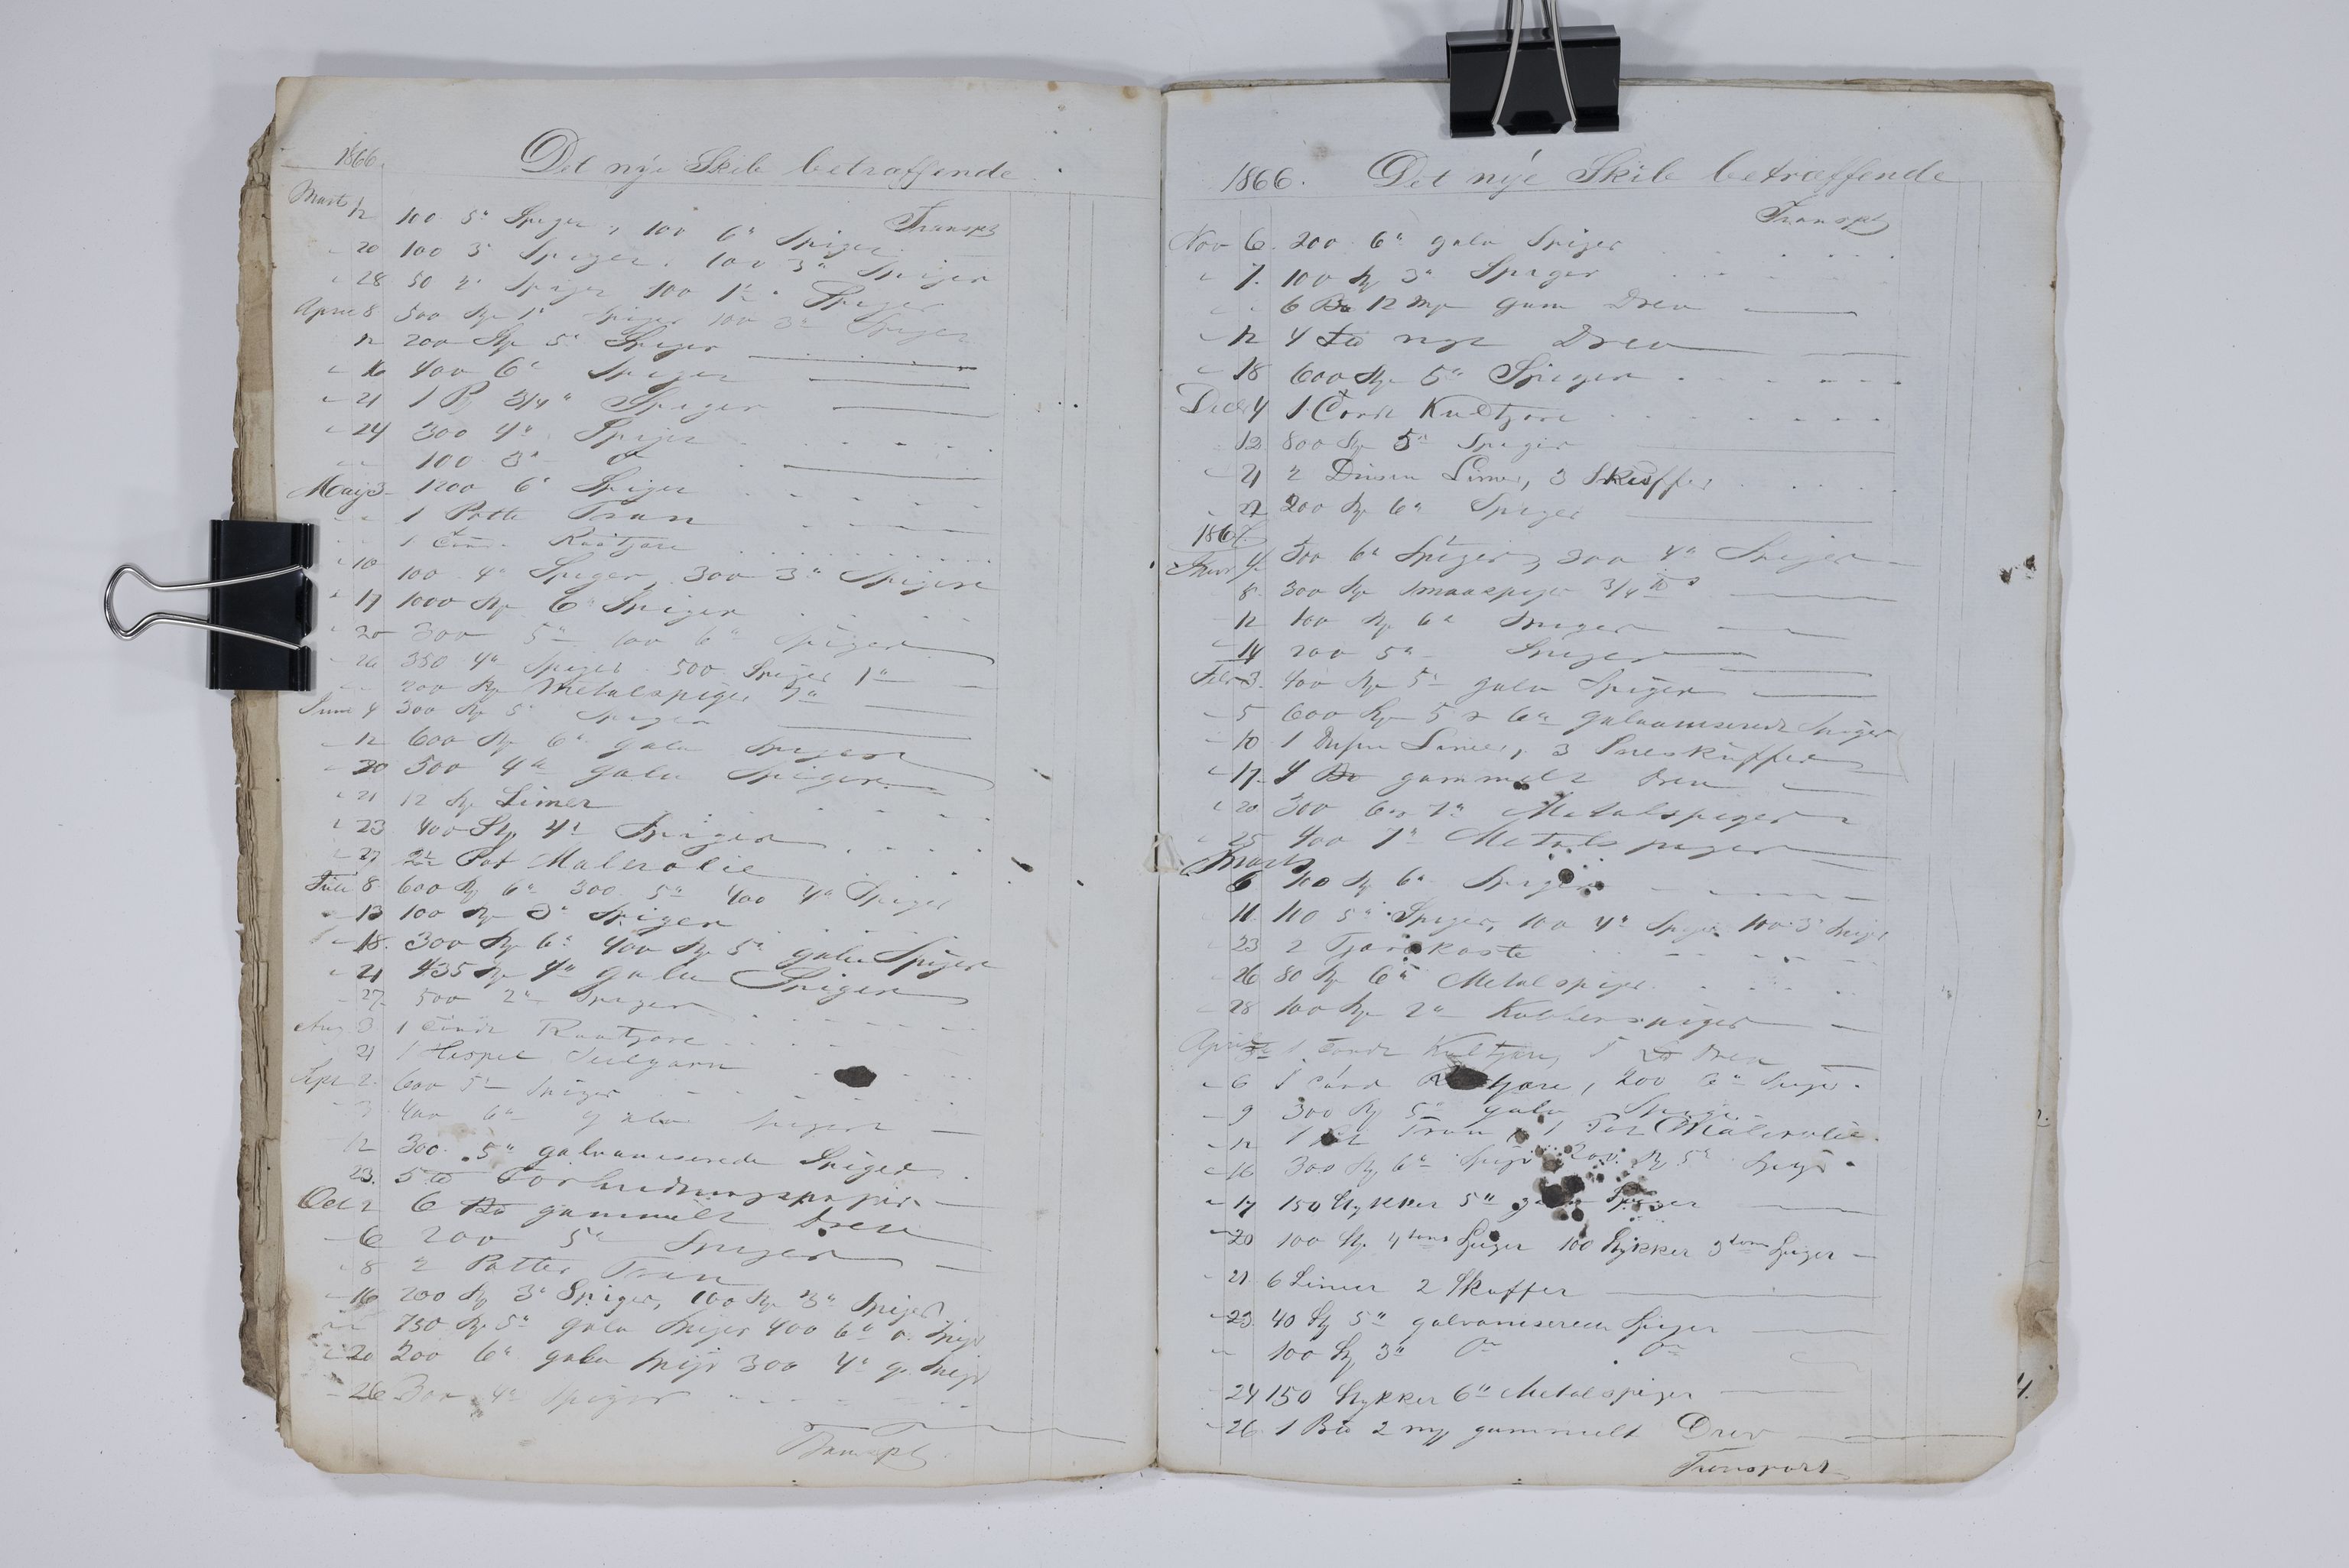 1866. Det nye Skib betræffende
Transpt
Marts 12 100 5" Spiger, 100 6" Spiger
" 20 100 5" Spiger, 100 3" Spiger
" 28 50 4" Spiger 100 1" Spiger
April 8 500 Stp 1" Spiger 100 3" Spiger
12 200 Stp 5" Spiger
" 16 400 6" Spiger
" 21 1 3/4" Spiger
" 24 300 4" Spiger
" " 100 3" do
May 3 1200 6" Spiger
" " 1 Potte Tran
" " 1 Tønde Raatjære
" 10 100 4" Spiger, 300 3" Spigere
" 17 1000 Stp 6" Spiger
" 20 300 5" 100 6" Spiger
" 26 350 4" Spiger 500 Spiger 1"
" " 200 Stp Metalspiger 7"
Juni 4 300 Stp 5" Spiger
" 12 600 Stp 6" galv Spigere
" 20 500 4" galv Spiger
" 21 12 Stp Limer
" 23 400 Stp 4" Spiger
" 27 2½ Pot Malerolie
Juli 8 600 Stp 6" 300 5" 400 4" Spiger
" 13 100 Stp 3" Spiger
" 18. 300 Stp 6" 400 Stp 5" galv Spiger
" 21 435 Stp 4" galv Spiger
" 27 500 2" Spiger
Aug 3 1 Tønde Raatjære
21 1 Hespel Seilgarn
Sept 2 600 5" Spiger
" 3 400 6" galv Spiger
" 12 300 5" galvaniserede Spiger
23. 5 Forhudningspapir
Oct 2 6 gammelt Drev
" 6 200 5" Spiger
" 8 2 Potter Tran
" 16 200 Stp 3" Spiger, 100 Stp 3" Spiger
" " 750 Stp 5" galv Spiger 400 6" Spiger
" 20 200 6" galv Spiger 300 4" g. Spiger
" 26 300 4" Spiger
Transpt
1866. Det nye Skib betræffende
Transpt
Nov 6. 200 6" galv Spiger
" 7. 100 Stp 3" Spiger
" " 6 12 gam Drev
" 12 4 nye Drev
" 18 600 Stp 5" Spiger
Dec 4 1 Tønde Kultjære
12 800 Stp 5" Spiger
" 21 2 Dusin Limer, 3 Skuffer
" 27 200 Stp 6" Spiger
1867
Janr 4 500 6" Spiger, 300 4" Spiger
8. 300 Stp smaaspiger 3/4
" 12 100 Stp 6" Spiger
" 14 200 5" Spiger
Febr 3. 400 Stp 5" galv Spiger
" 5 600 Stp 5 & 6" galvaniserede Spiger
" 10 1 Dusin Limer, 3 Sneskuffer
" 17. 4 gammelt Drev
" 20 300 6 & 7" Metalspiger
" 25 400 7" Metalspiger
Marts
6 100 Stp 6" Spiger
" 11. 110 5" Spiger, 100 4" Spiger 100 3" Spiger
" 23 2 Tjærekoste
" 26 80 Stp 6" Metalspiger
" 28 100 Stp 2" Kobberspiger
April 1 Tønde Kultjære, 5 Drev
" 6 1 Tønde Raatjære, 200 6" Spiger
" 9 300 Stp 5" galv Spiger
" 12 1 Pot Tran, 1 Pot Malerolie
" 16 300 Stp 6" Spiger 200 Stp 5" Spiger
" 17 150 Stykker 5" galv Spiger
" 20 100 Stp 4toms Spiger 100 Stykker 3toms Spiger
" 21 6 Limer 2 Skuffer
" 23. 40 Stp 5" galvaniserede Spiger
" 100 Stp 3" Do Do
" 24 150 Stykker 6" Metalspiger
" 26 1 2 gammelt Drev
Transport